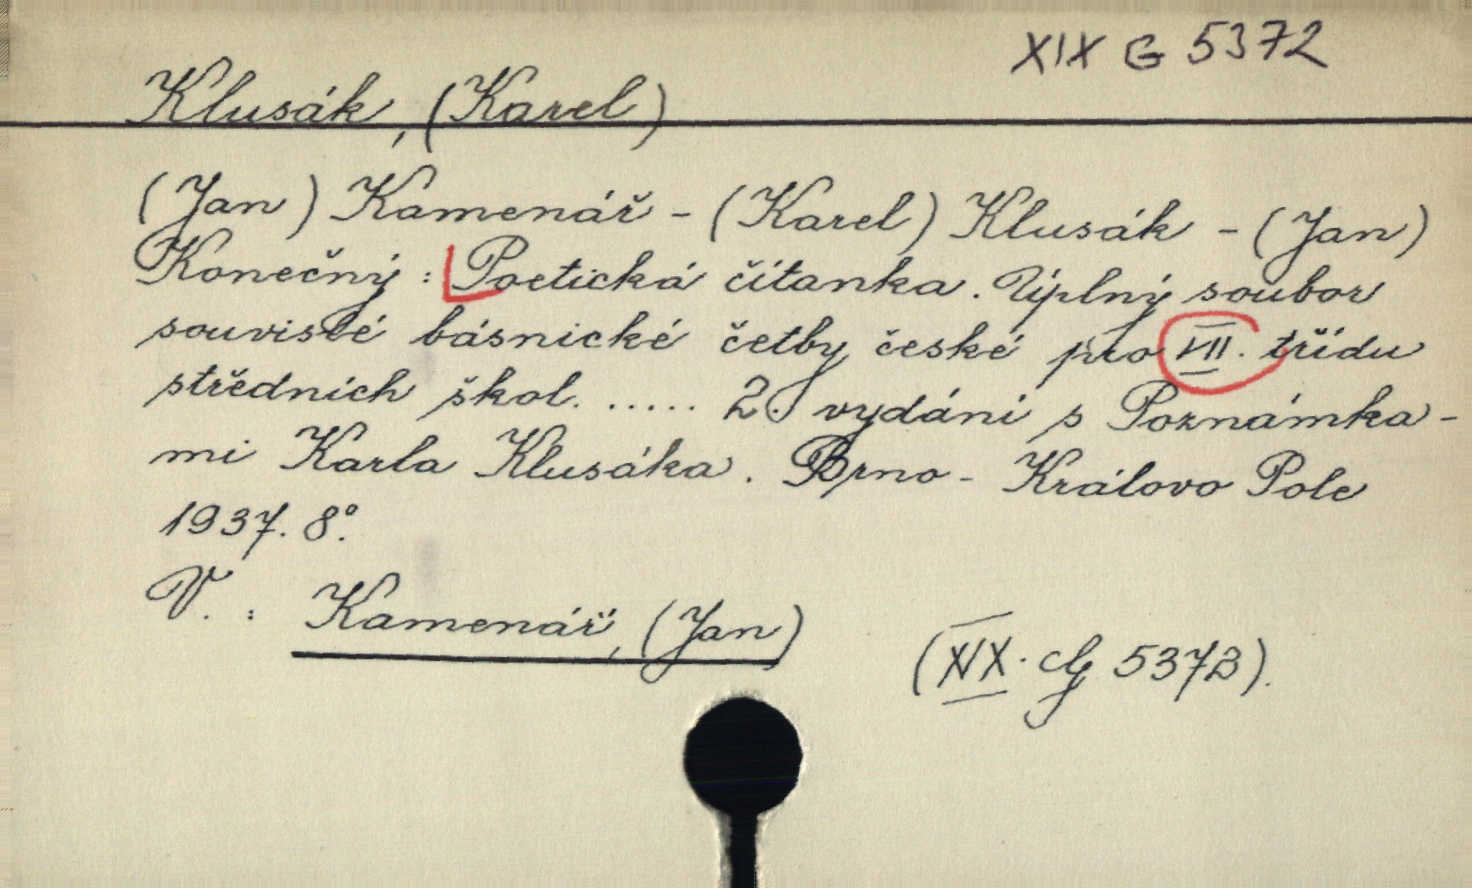 XIX G 5372
Klusák, (Karel)
(Jan) Kamenář - (Karel) Klusák - (Jan)
Konečný : Poetická čítanka. Úplný soubor
souvislé básnické četby české pro VII. třídu
středních škol. ..... 2. vydání s Poznámka-
mi Karla Klusáka. Brno - Královo Pole
1937. 8°.
V. : Kamenář, (Jan)
(XIX. G 5372).